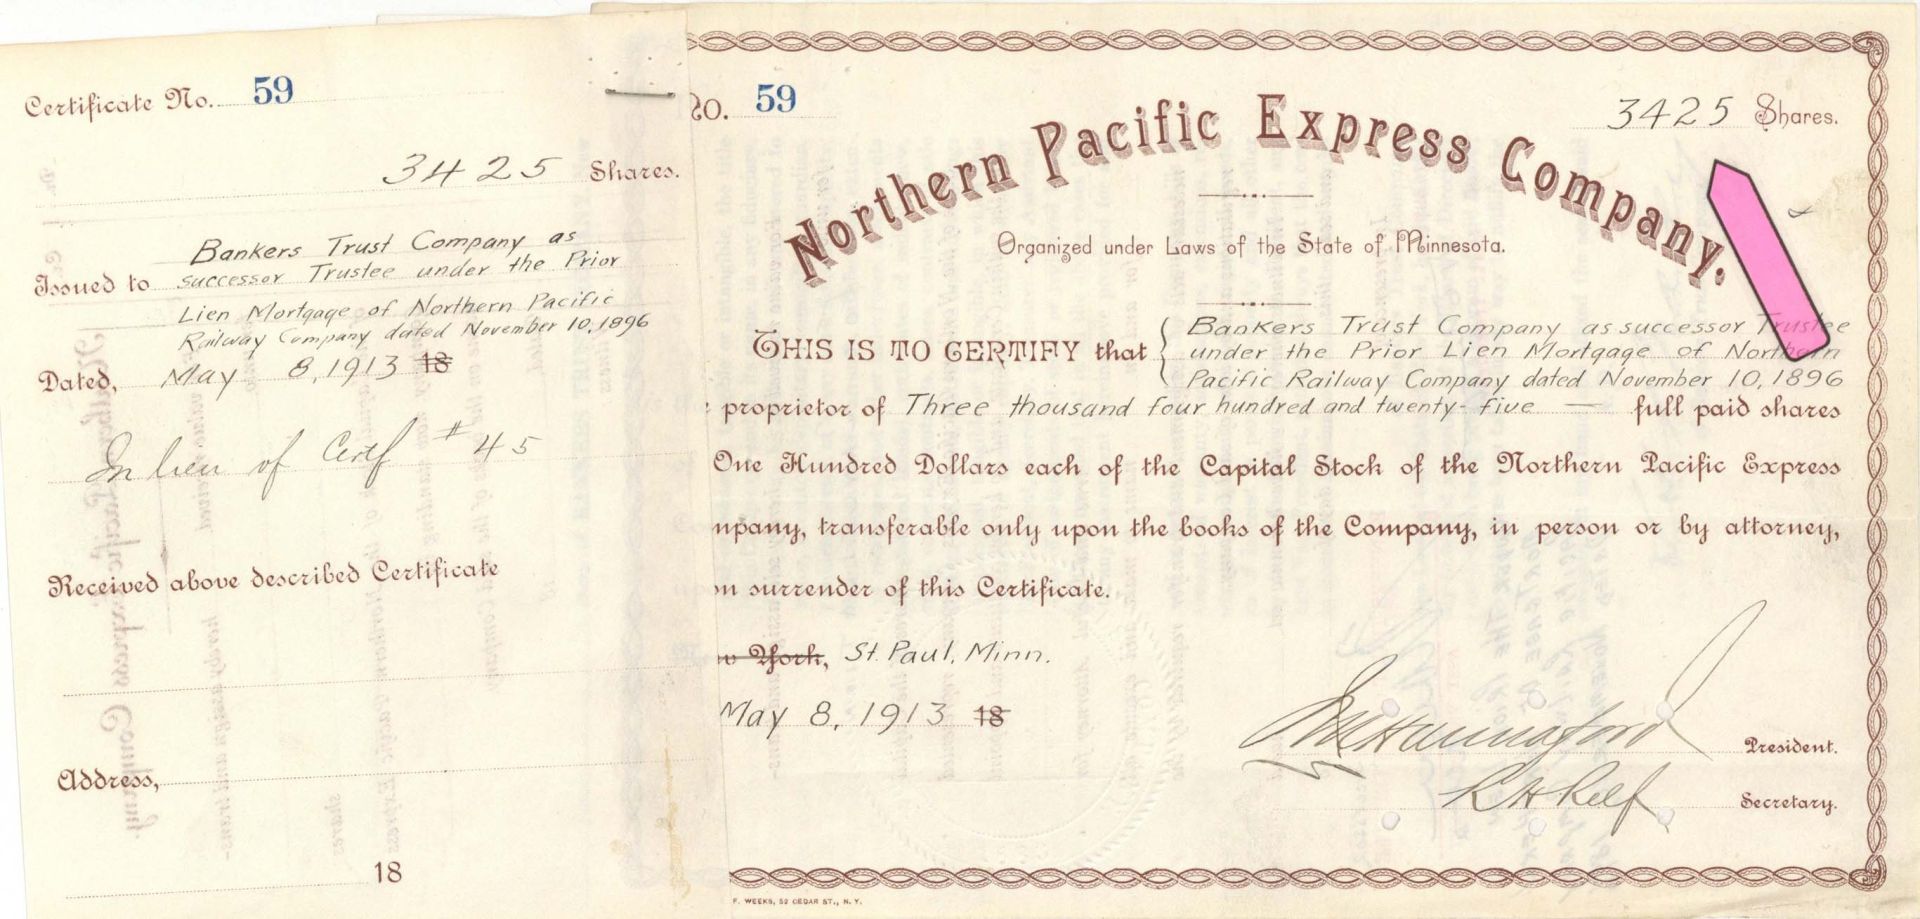 Certificate No. 59
3425 Shares.
Issued to Bankers Trust Company as
successor Trustee under the Prior
Lien Mortgage of Northern Pacific
Railway Company dated November 10, 1896
Dated, May 8, 1913 18
In lieu of Certf # 45
Received above described Certificate
Address,
18
No. 59
3425 Shares.
Northern Pacific Express Company.
Organized under Laws of the State of Minnesota.
THIS IS TO CERTIFY that { Bankers Trust Company as successor Trustee
under the Prior Lien Mortgage of Northern
Pacific Railway Company dated November 10, 1896
proprietor of Three thousand four hundred and twenty-five — full paid shares
One Hundred Dollars each of the Capital Stock of the Northern Pacific Express
mpany, transferable only upon the books of the Company, in person or by attorney,
on surrender of this Certificate.
w York, St. Paul, Minn.
May 8, 1913 18
President.
Secretary.
F. WEEKS, 52 CEDAR ST., N. Y.